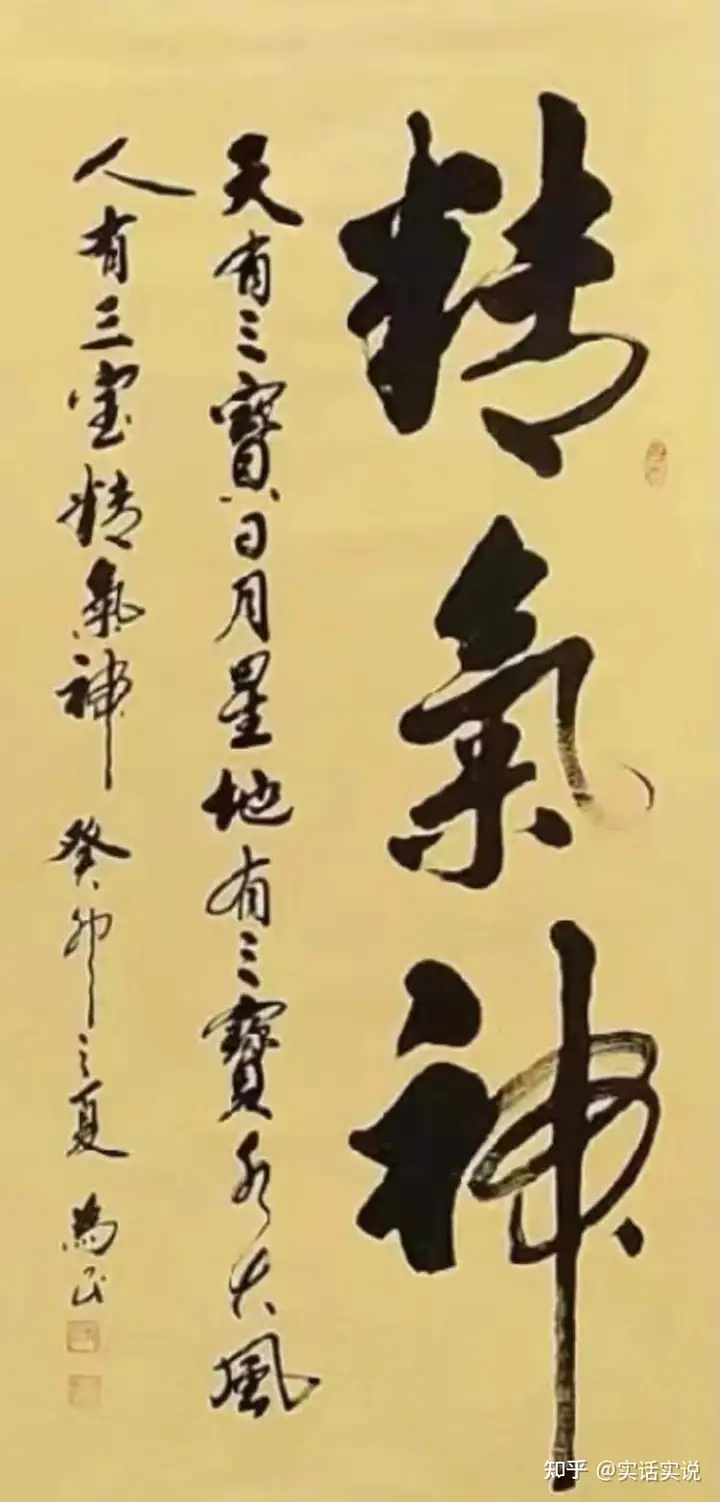 精氣神
天有三寶日月星地有三寶水火風
人有三宝精氣神 癸卯之夏 為民
知乎 @实话实说